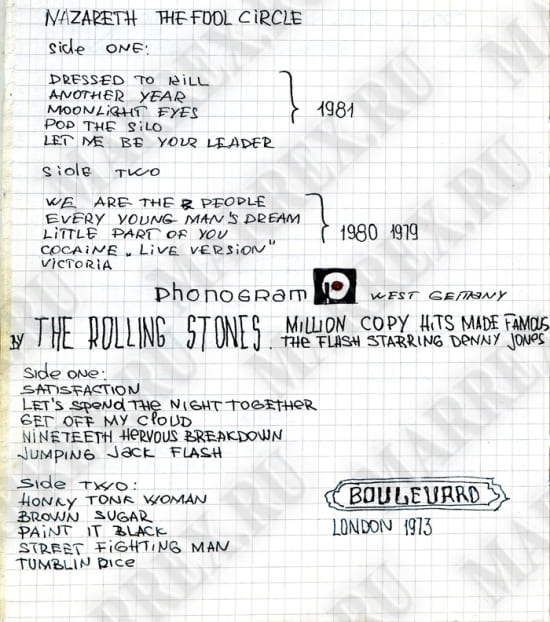 NAZARETH THE FOOL CIRCLE
Side ONE:
DRESSED TO KILL
ANOTHER YEAR
MOONLIGHT EYES
POP THE SILO
LET ME BE YOUR LEADER
1981
Side TWO
WE ARE THE PEOPLE
EVERY YOUNG MAN'S DREAM
LITTLE PART OF YOU
COCAINE „LIVE VERSION"
VICTORIA
1980 1979
PhONOGRAM WEST GERMANY
BY THE ROLLING STONES. MILLION COPY HITS MADE FAMOUS
THE FLASH STARRING DENNY JONES
Side ONE:
SATISFACTION
LET'S SPEND THE NIGHT TOGETHER
GET OFF MY CLOUD
NINETEETH NERVOUS BREAKDOWN
JUMPING JACK FLASH
Side TWO:
HONKY TONK WOMAN
BROWN SUGAR
PAINT IT BLACK
STREET FIGHTING MAN
TUMBLIN DICE
BOULEVARD
LONDON 1973
MARREX.RU